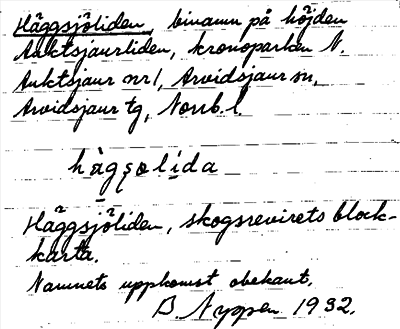 Häggsjöliden, binamn på höjden
Auktsjaurliden, kronoparken N.
Auktsjaur nr 1, Arvidsjaur sn,
Arvidsjaur tg, Norrb. l.
hàgʂolída
Häggsjöliden, skogsrevirets block-
karta.
Namnets uppkomst obekant.
B. Nyppen 1932.